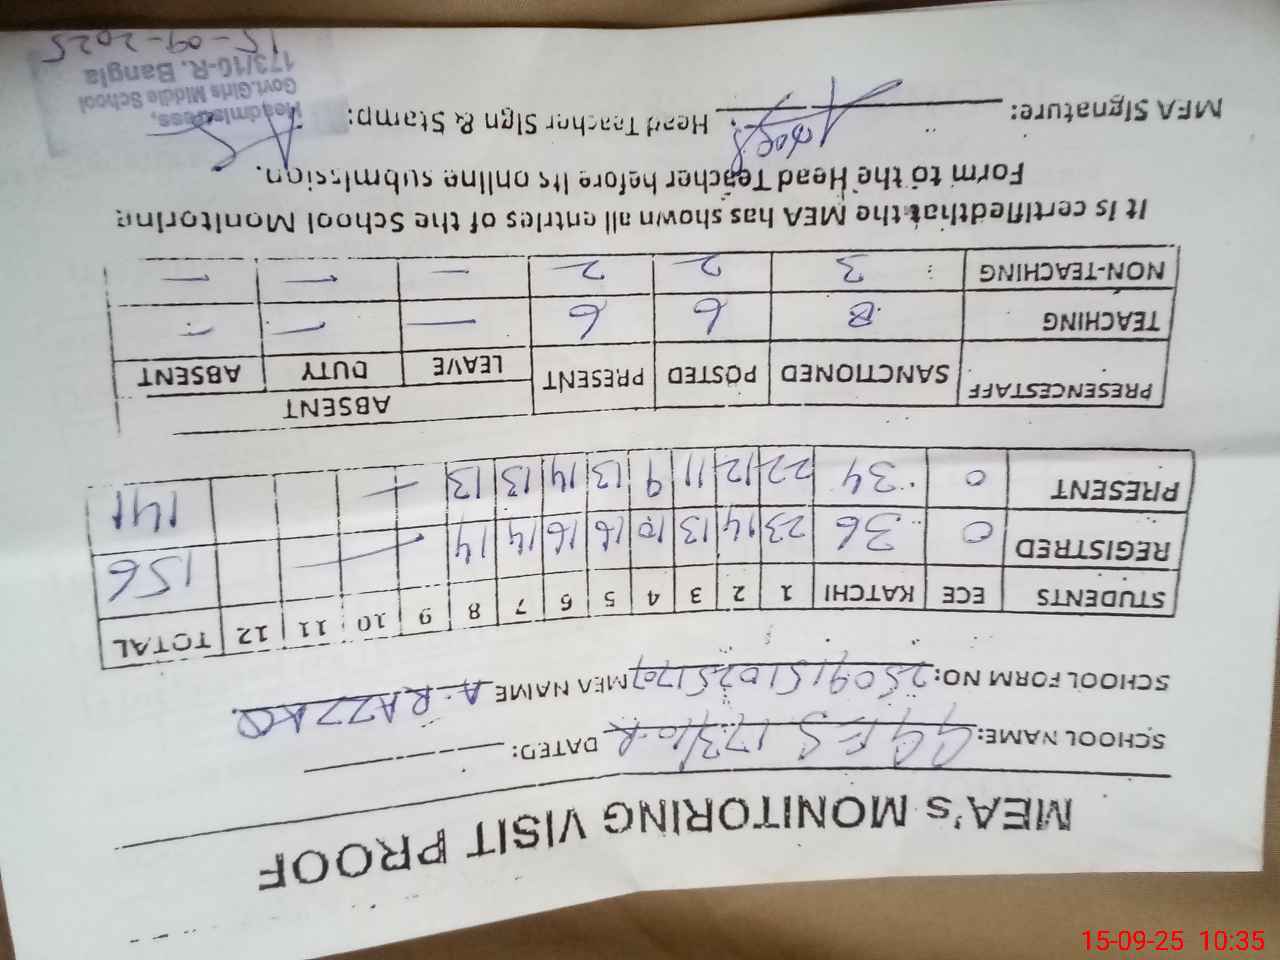 MEA's MONITORING VISIT PROOF
SCHOOL NAME: GGES 173/10-R DATED:
SCHOOL FORM NO: 25091510251707 MEA NAME A. RAZZAQ
STUDENTS ECE KATCHI 1 2 3 4 5 6 7 8 9 10 11 12 TOTAL
REGISTRED 0 36 23 14 13 10 16 16 14 14 156
PRESENT 0 34 22 12 11 9 13 14 13 13 141
PRESENCESTAFF SANCTIONED POSTED PRESENT ABSENT
LEAVE DUTY ABSENT
TEACHING 8 6 6 — — —
NON-TEACHING 3 2 2 — — —
It is certifiedthat the MEA has shown all entries of the School Monitoring
Form to the Head Teacher before its online submission.
MEA Signature: Head Teacher Sign & Stamp:
Headmistress,
Govt.Girls Middle School
173/10-R. Bangla
15-09-2025
15-09-25 10:35